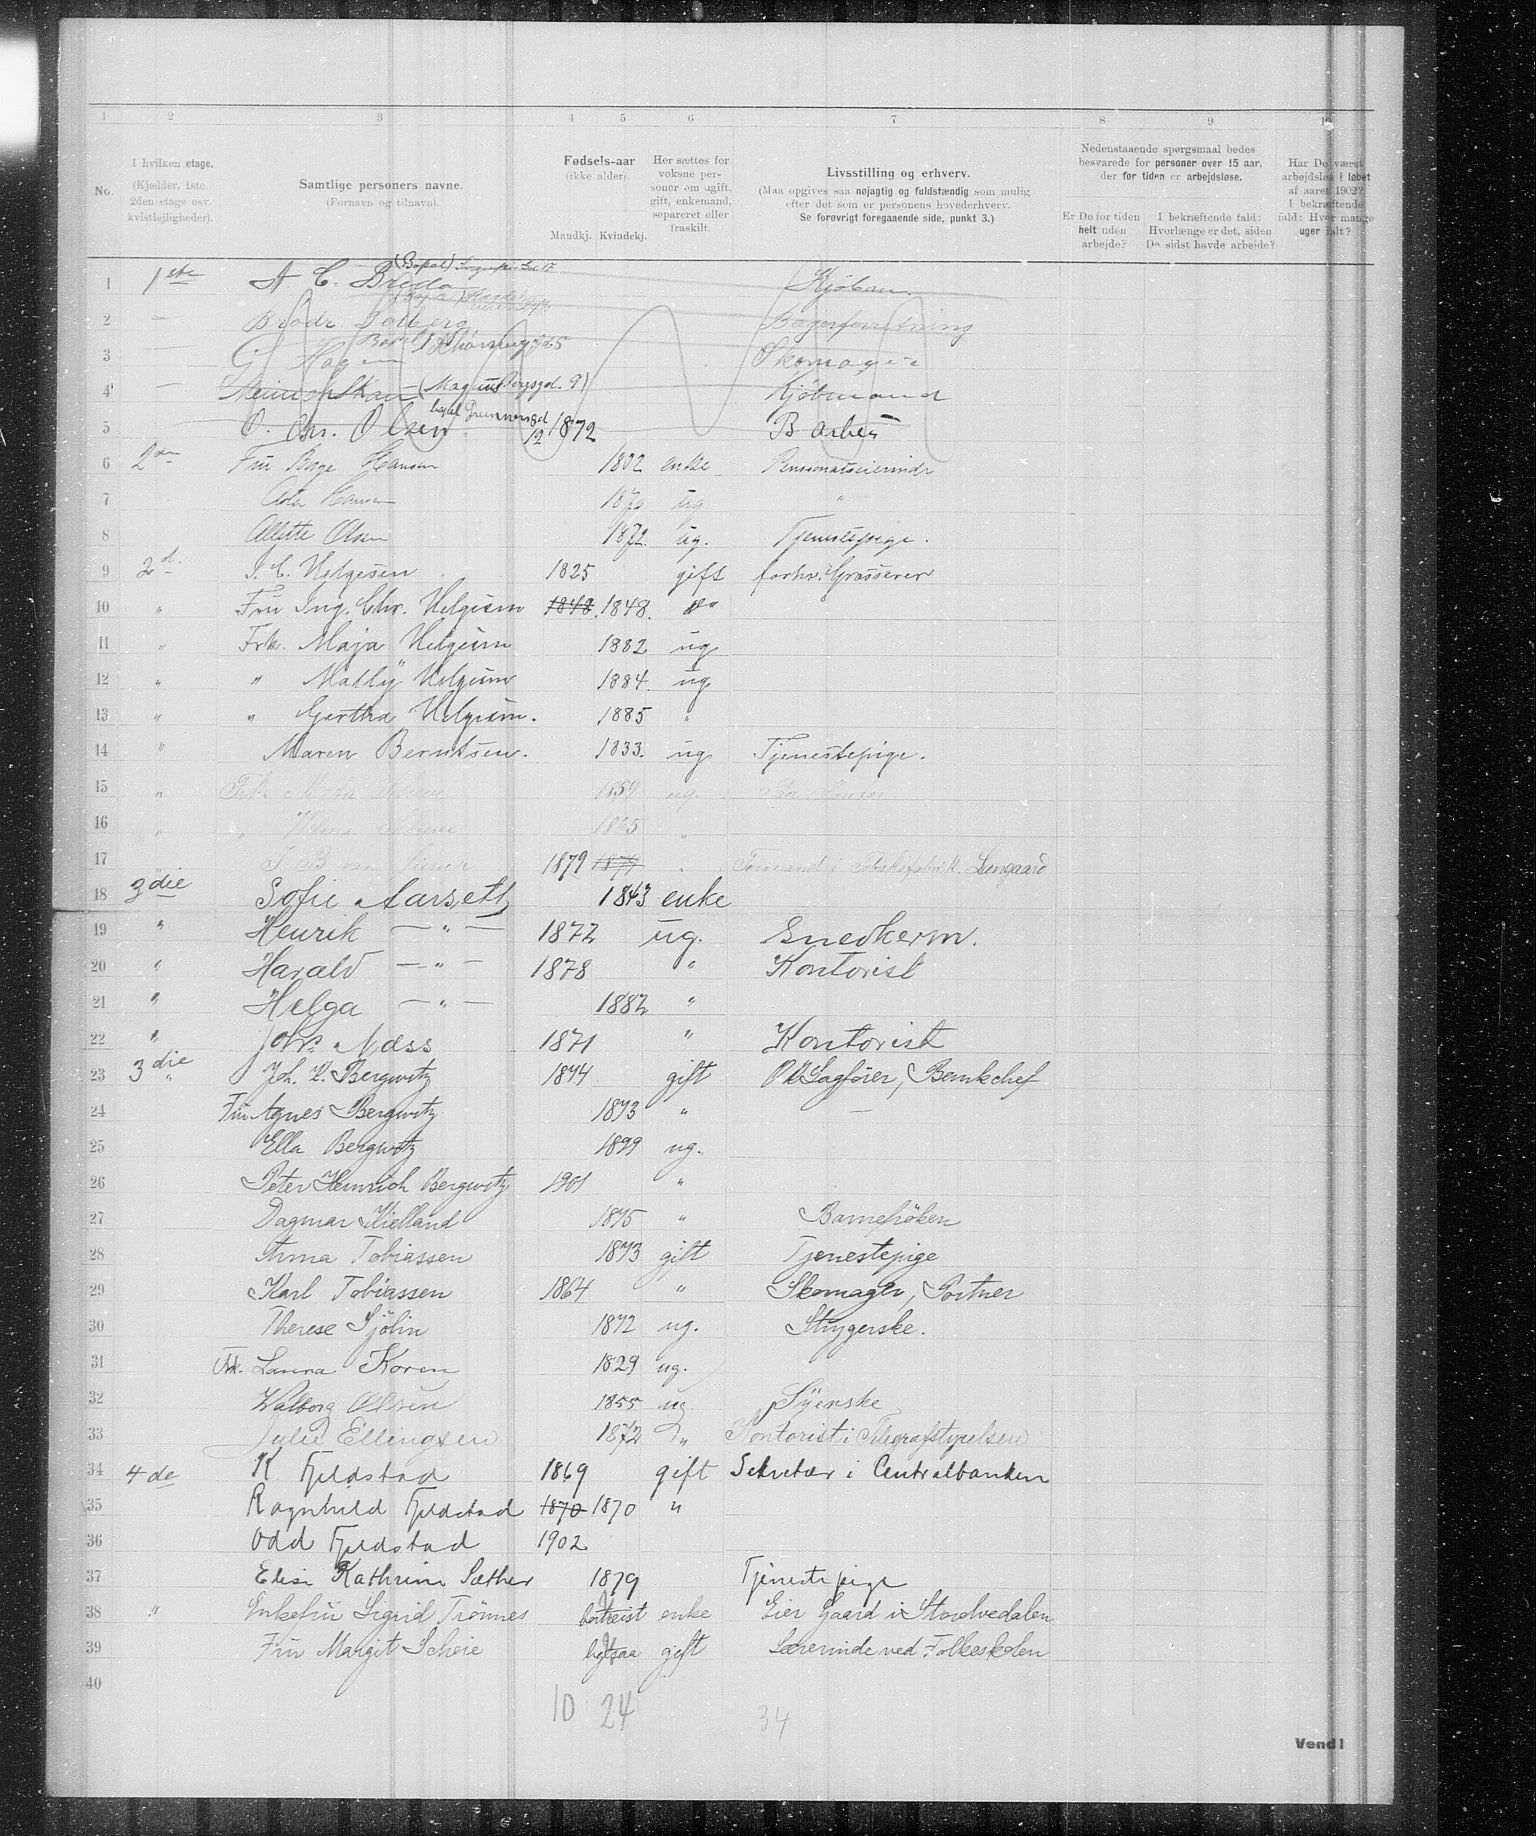 1 2 3 4 5 6 7 8 9 10
No.
I hvilken etage. (Kjelder, 1ste, 2den etage osv. kvistlejligheder).
Samtlige personers navne. (Fornavn og tilnavn).
Fødsels-aar (ikke alder). Mandkj. Kvindekj.
Her sættes for voksne personer om ugift, gift, enkemand, separeret eller fraskilt.
Livsstilling og erhverv. (Maa opgives saa nøjagtig og fuldstændig som mulig efter det som er personens hovederhverv. Se forøvrigt foregaaende side, punkt 3.)
Nedenstaaende spørgsmaal bedes besvarede for personer over 15 aar, der for tiden er arbejdsløse.
Er De for tiden helt uden arbejde?
I bekræftende fald: Hvorlænge er det, siden De sidst havde arbejde?
Har De været arbejdsløs i løbet af aaret 1902? I bekræftende fald: Hvor mange uger ialt?
1 1ste A C. Breda (Bopæl) Kjøbm.
2 — Brødr. Solberg Bagerforretning
3 G. Hagen Bopæl Skomager
4 — (Magnus Bergsgd. 9) Kjøbmand
5 O. Chr. Olsen bopæl Grünnersgd 12 1872 Barber
6 2den Fru Hansen 1832 enke Pensionatseierinde
7 Hansen 187 ug "
8 Allette Olsen 1872. ug. Tjenestepige.
9 2d. J. C. Helgesen 1825 gift forhv. Grosserer
10 " Fru Ing. Chr. Helgesen 1848. 1848. "
11 " Frk. Maja Helgesen 1882 ug
12 " " Mally Helgesen 1884. ug
13 " " Gertha Helgesen. 1885 "
14 " Maren Berntsen. 1833. ug Tjenestepige.
15 " Frk. 1859 ug.
16 " " 1865 "
17 J. B. 1879 1879 " Formand i Tobaksfabrik. Lungaard
18 3die Sofie Aarseth 1843 enke
19 " Henrik — " — 1872 ug. Snedkerm.
20 " Harald — " — 1878 " Kontorist
21 " Helga — " — 1882 "
22 " Johs. Næss 1871 " Kontorist
23 3die " Joh. L. Bergwitz 1874 gift O R Sagfører, Bankchef
24 Fru Agnes Bergwitz 1873 " —
25 Ella Bergwitz 1899 ug.
26 Peter Heinrich Bergwitz 1901 "
27 Dagmar Kielland 1875 " Barnefrøken
28 Anna Tobiassen 1873 gift Tjenestepige
29 Karl Tobiassen 1864 " Skomager, Portner
30 Therese Sjölin 1872 ug. Strygerske.
31 Frk. Laura Koren 1829 ug.
32 Walborg Olsen 1855 ug Syerske
33 Julie Ellingsen 1872 " Kontorist i Telegrafstyrelsen
34 4de K. Fjeldstad 1869 gift Sekretær i Centralbanken
35 Ragnhild Fjeldstad 1870 1870 "
36 Odd Fjeldstad 1902
37 Elise Kathrine Sæther 1879 Tjenestepige
38 " Enkefru Sigrid Trönnes bortreist enke Eier Gaard i Storelvedalen
39 Fru Margit Scheie ligesaa gift Lærerinde ved Folkeskolen
40
10 24 34
Vend!